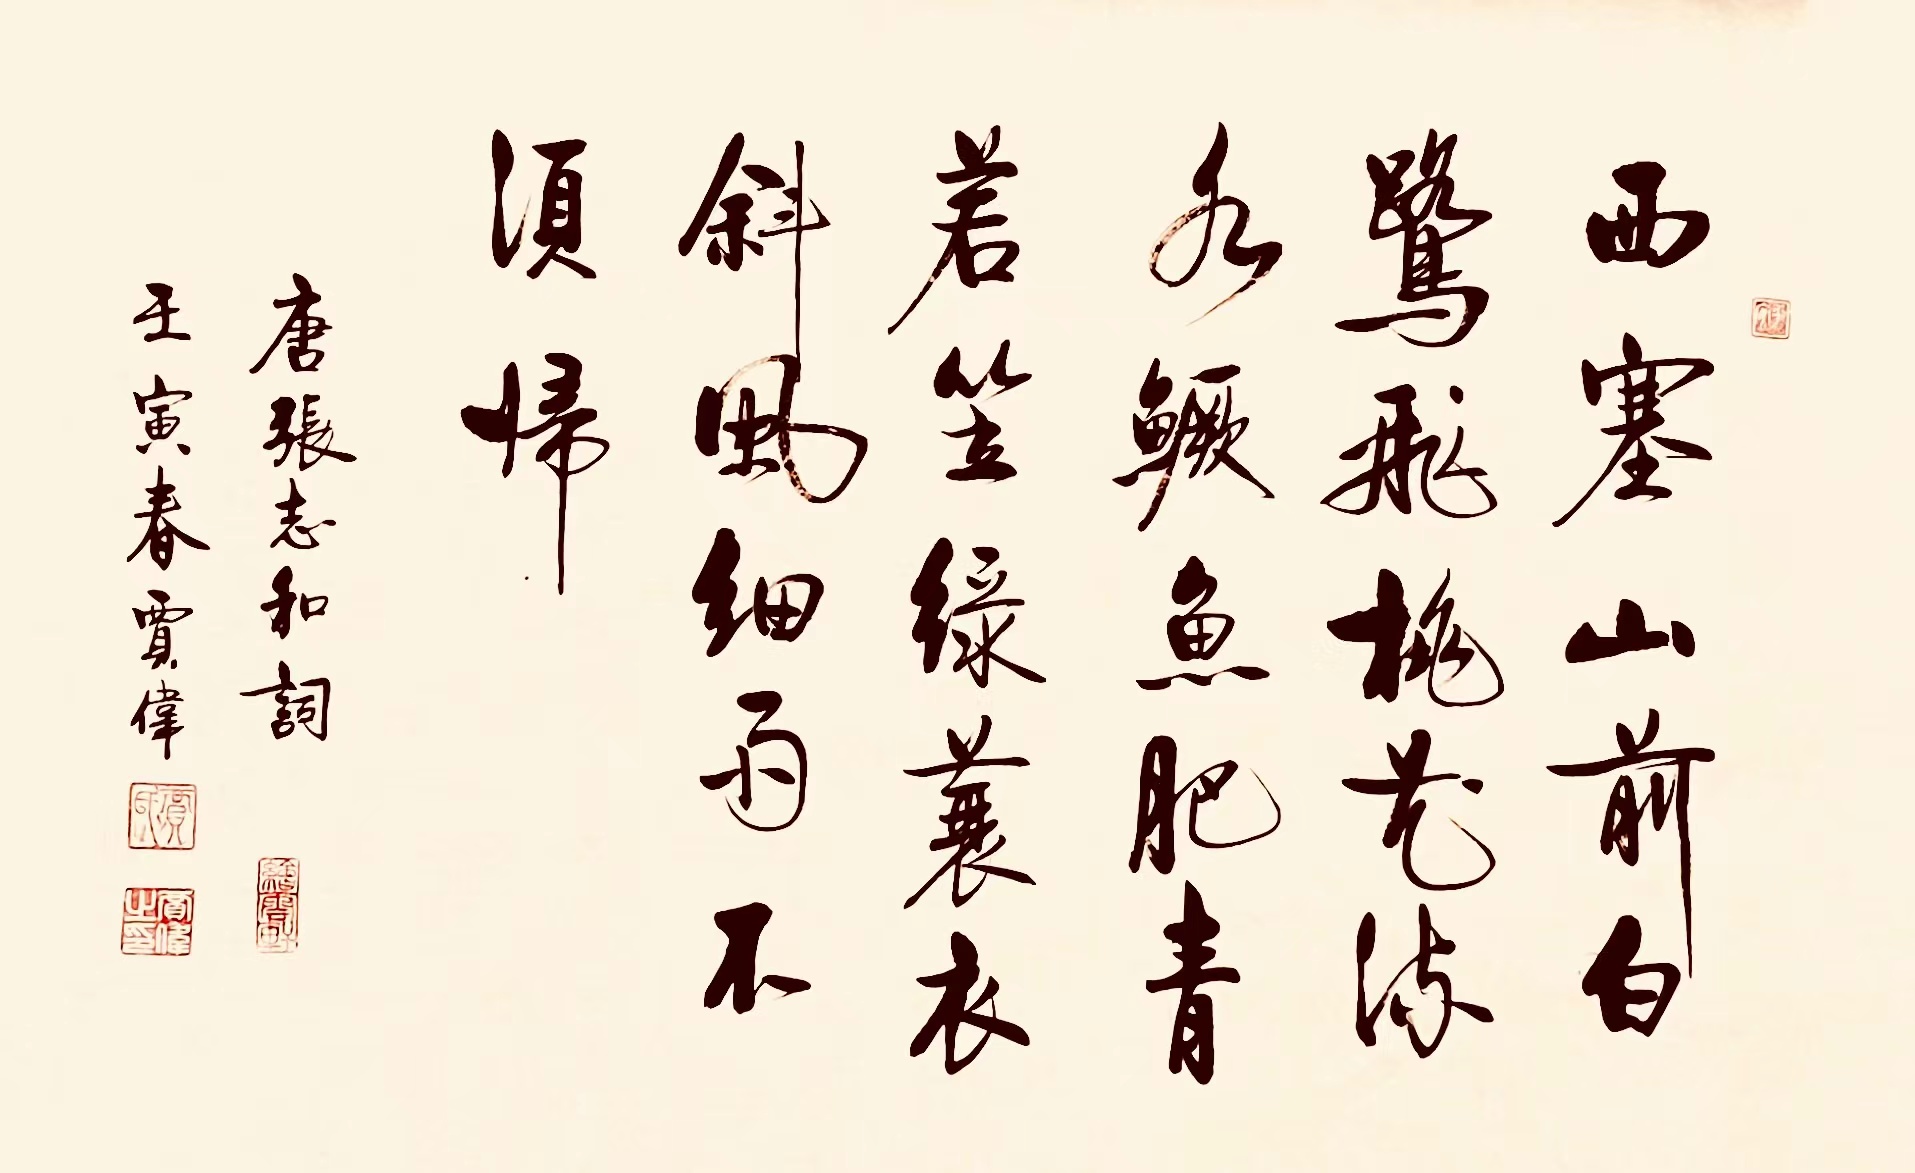 西塞山前白
鷺飛桃花流
水鱖魚肥青
若笠綠蓑衣
斜風細雨不
須歸
唐張志和詞
壬寅春賈偉
賈偉之印